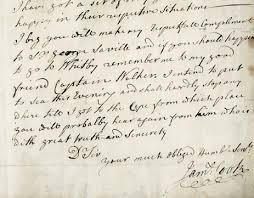 I have got a set of
happy in their respective Situations
I beg you will make my respectfull Compliments
to Sr Geor Savill and if you should happen
to go to Whitby remember me to my good
friend Captain Walker I intend to put
to Sea this Evening and shall hardly stop any
where till I get to the Cape from which place
you will probably hear again from him who is
with great truth and sincerity
Dr Sir
Your much Obliged Humble Servt
Jams Cook